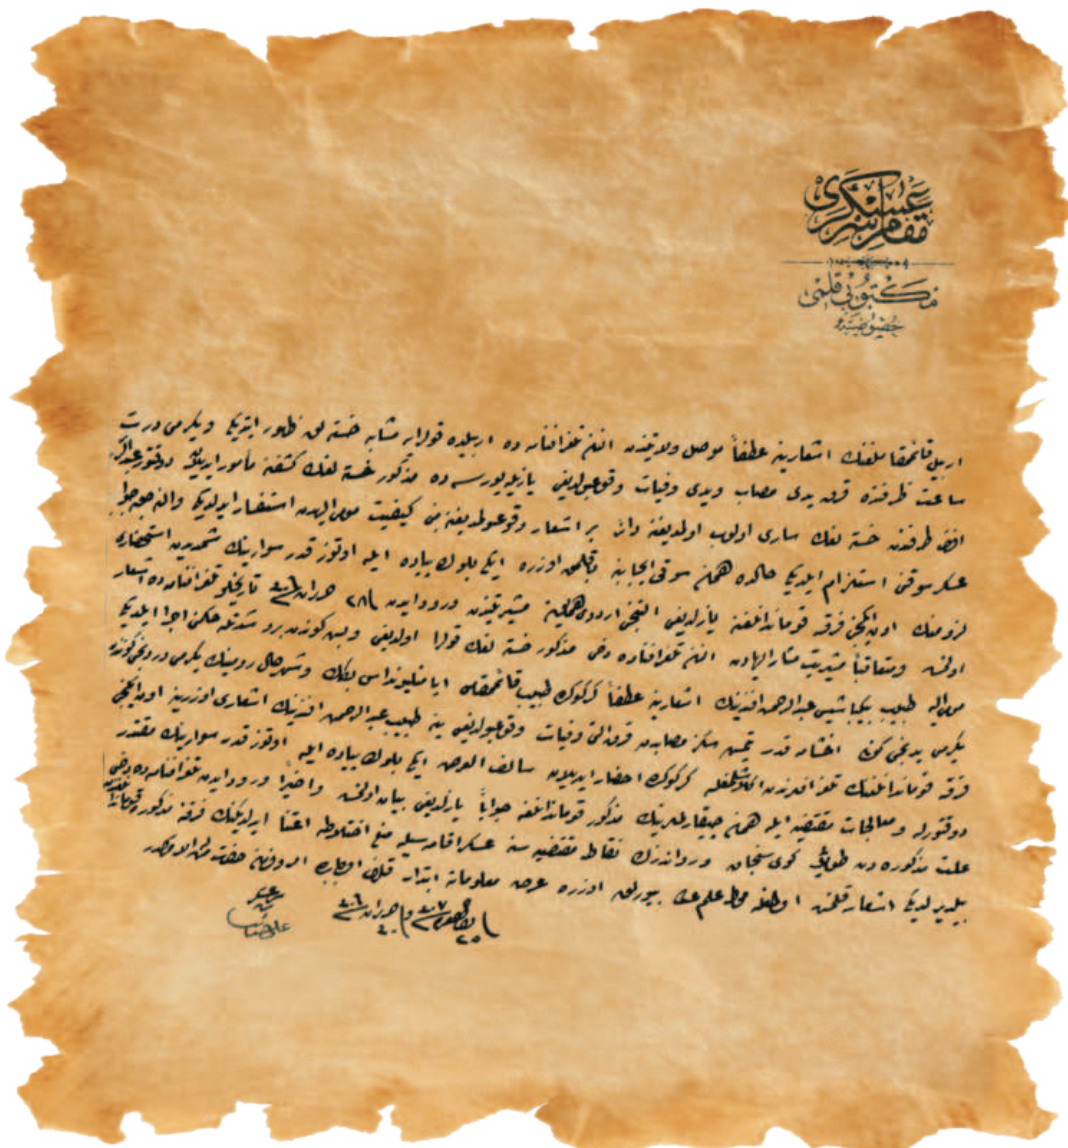 مقام سر عسكرى
مكتوبى قلمى
اربيل قائمقاملغنك اشعارينه عطفاً موصل ولايتندن النان تلغرافنامه ده اربيلده قولرايه مشابه خسته لق ظهور ايتديكى ويكرمى درت
ساعت ظرفنده قرق يدى مصاب ويدى وفيات وقوعبولديغى يازيليورسه ده مذكور خسته لغك كشفنه مأمور ايديلان دوقتور
افندى طرفندن خسته لغك سارى اولوب اولمديغنه دائر بر اشعار وقوعبولمديغندن كيفيت موصلدن استفسار ايديلديكى والنه جق جوابه
عسكر سوقنى استلزام ايلديكى حالده همان سوقى ايجابنه باقلمق اوزره ايكى بلوك پياده ايله اوتوز قدر سوارينك شمديدن استحضارى
لزومنك اون ايكنجى فرقه قوماندانلغنه يازلديغى التنجى اردوى همايون مشيريتندن ورود ايدن ٢٨ حزيران تاريخلو تلغرافنامه ده اشعار
اولنمش ومتعاقباً مشيريت مشار اليهادن النان تلغرافنامه ده دخى مذكور خسته لغك قولرا اولديغى وبش كوندن برو شدتله حكمنى اجرا ايلديكى
مومى اليه طبيب بيكباشى عبدالرحمن افندينك اشعارينه عطفاً كركوك طبيب
يكرمى يدنجى كونى اخشامه قدر يتمش سكز مصابدن قرق التى وفيات وقوعبولديغى ينه طبيب عبدالرحمن افندينك اشعارى اوزرينه اون ايكنجى
فرقه قوماندانلغنك تلغرافندن اكلاشلمغله كركوك احضار ايديلان سالف العرض ايكى بلوك پياده ايله اوتوز قدر سوارينك مقتدر
دوقتورلر ومعالجات مقتضيه ايله همان چيقارلمه لرينك مذكور قوماندانلغه جواباً يازلديغى بيان اولنمش واخيراً ورود ايدن تلغرافنامه ده دخى
علت مذكوره دن طولايى كوى سنجاق ورواندزك نقاط مقتضيه سنه عسكر اقامه سيله منع اختلاطه اعتنا ايدلديكنك فرقه مذكوره قوماندانلغندن
بيلديرلديكى اشعار قلنمش اولمغله محاط علم عالى بيورلمق اوزره عرض معلوماته ابتدار قلندى اولبابده امر وفرمان حضرت من له الامركدر
سر عسكر
على رضا